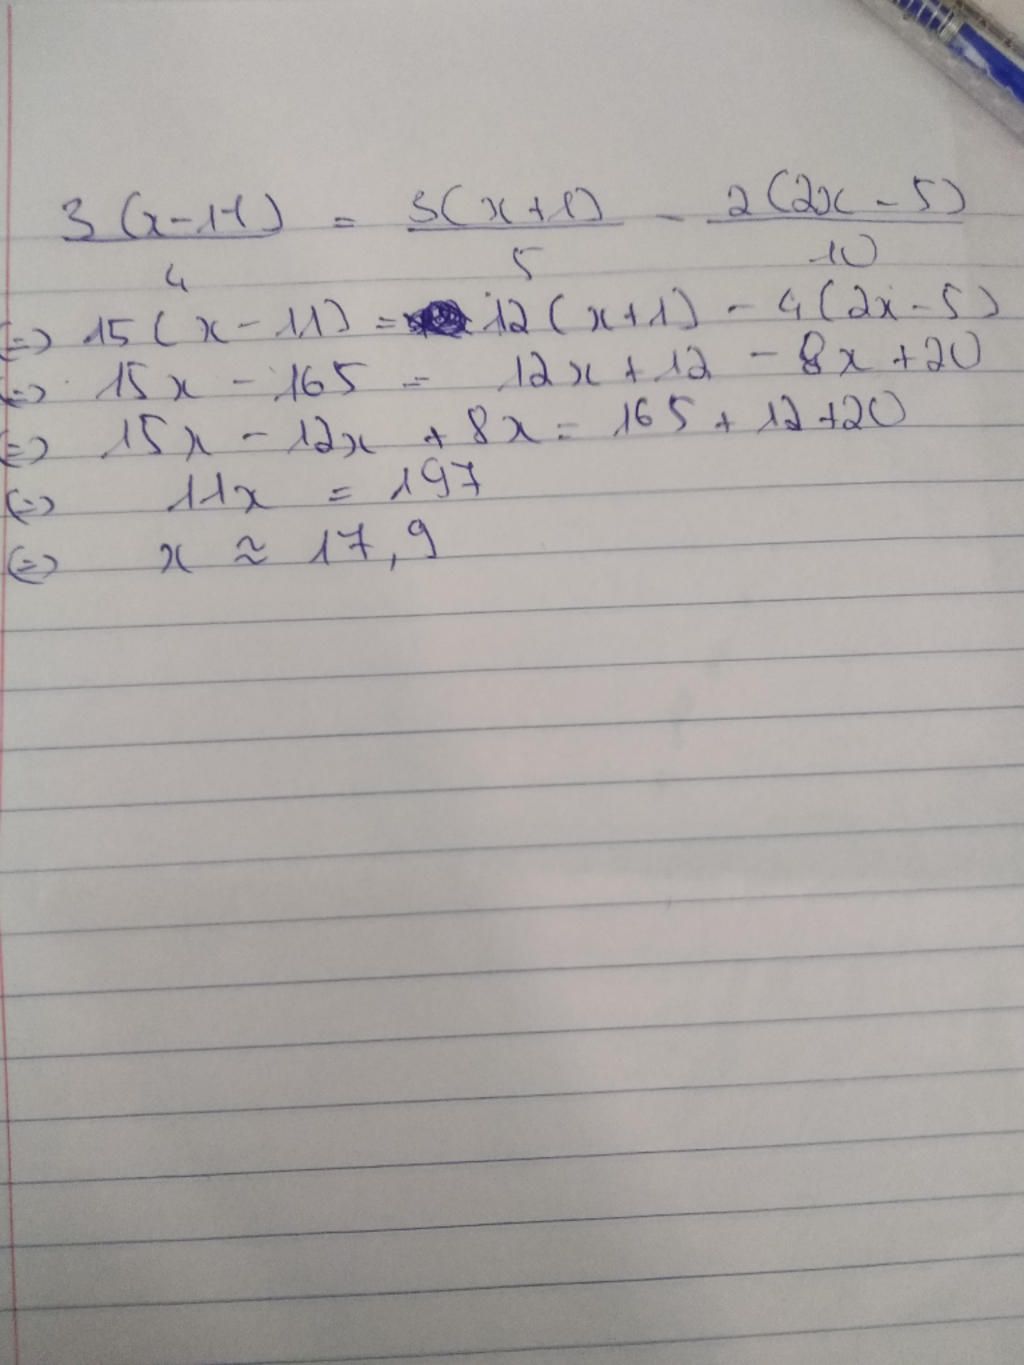 3(x-11)/4 = 3(x+1)/5 - 2(2x-5)/10
(=) 15(x-11) = 12(x+1) - 4(2x-5)
(=) 15x - 165 = 12x + 12 - 8x + 20
(=) 15x - 12x + 8x = 165 + 12 + 20
(=) 11x = 197
(=) x ≈ 17,9